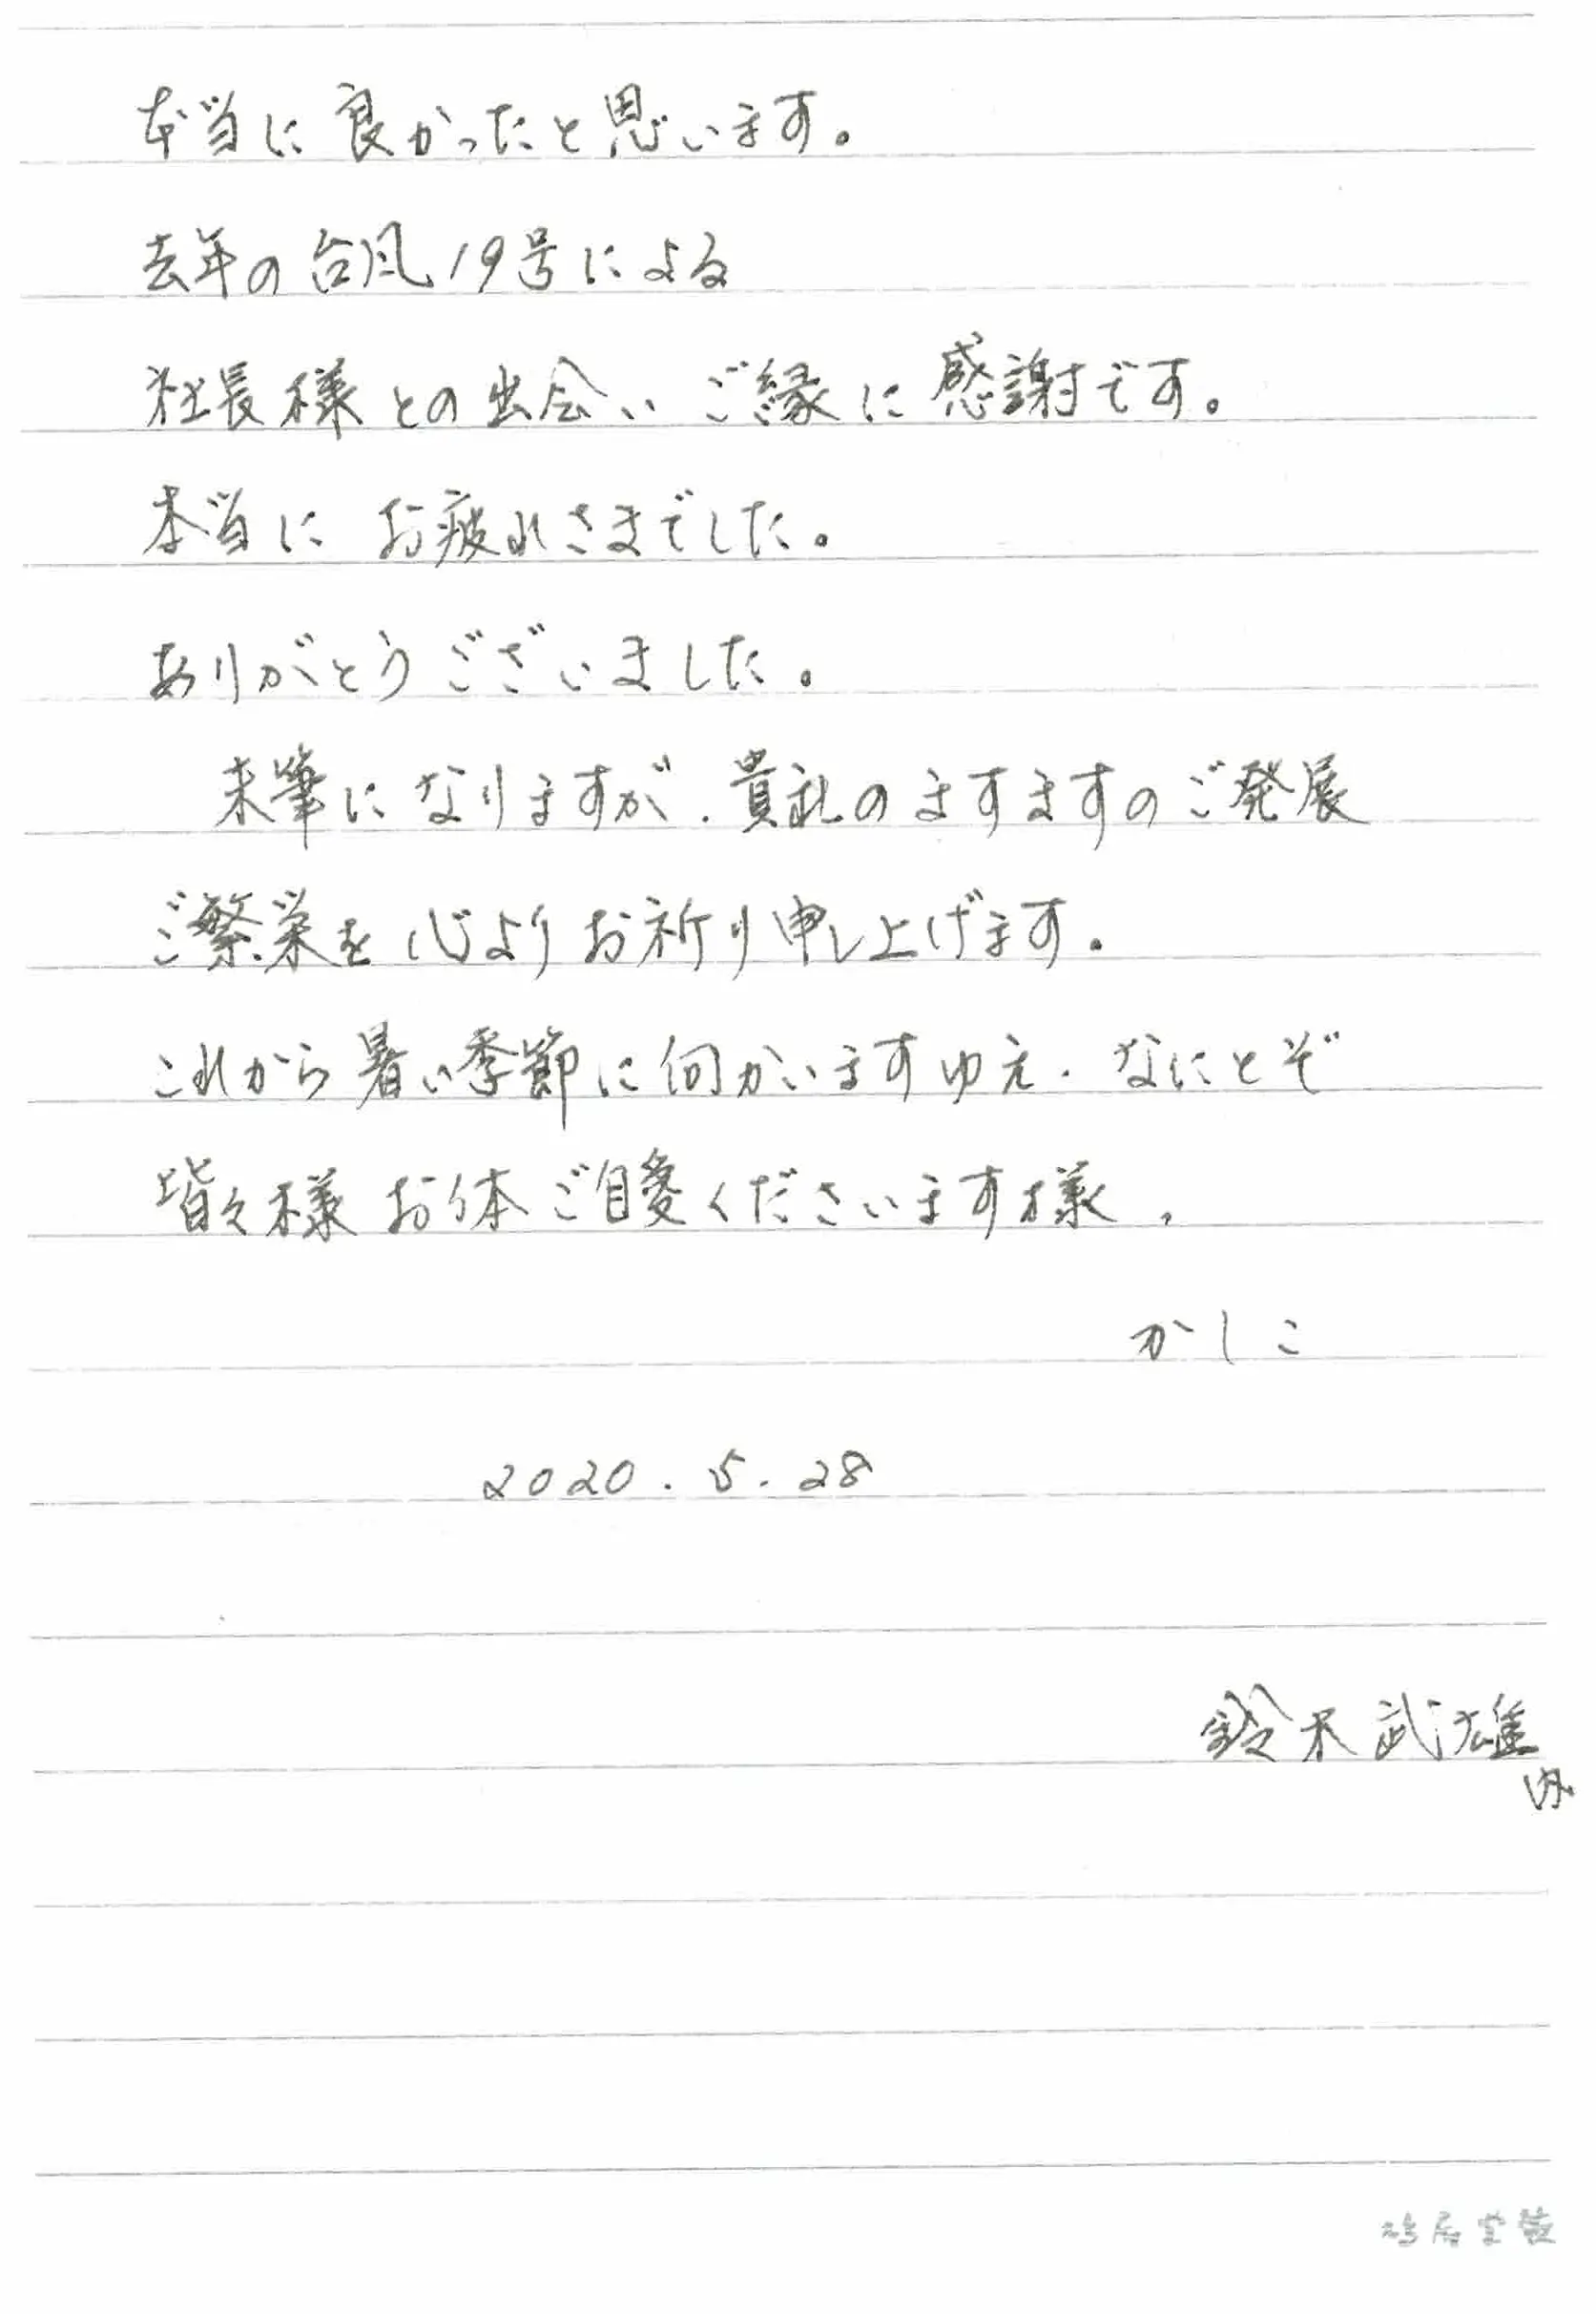 本当に良かったと思います。
去年の台風19号による
社長様との出会い ご縁に感謝です。
本当に お疲れさまでした。
ありがとうございました。
末筆になりますが、貴社のますますのご発展
ご繁栄を心よりお祈り申し上げます。
これから暑い季節に向かいますゆえ、なにとぞ
皆々様 お体ご自愛くださいます様、
かしこ
2020.5.28
鈴木武雄
内
鳩居堂製